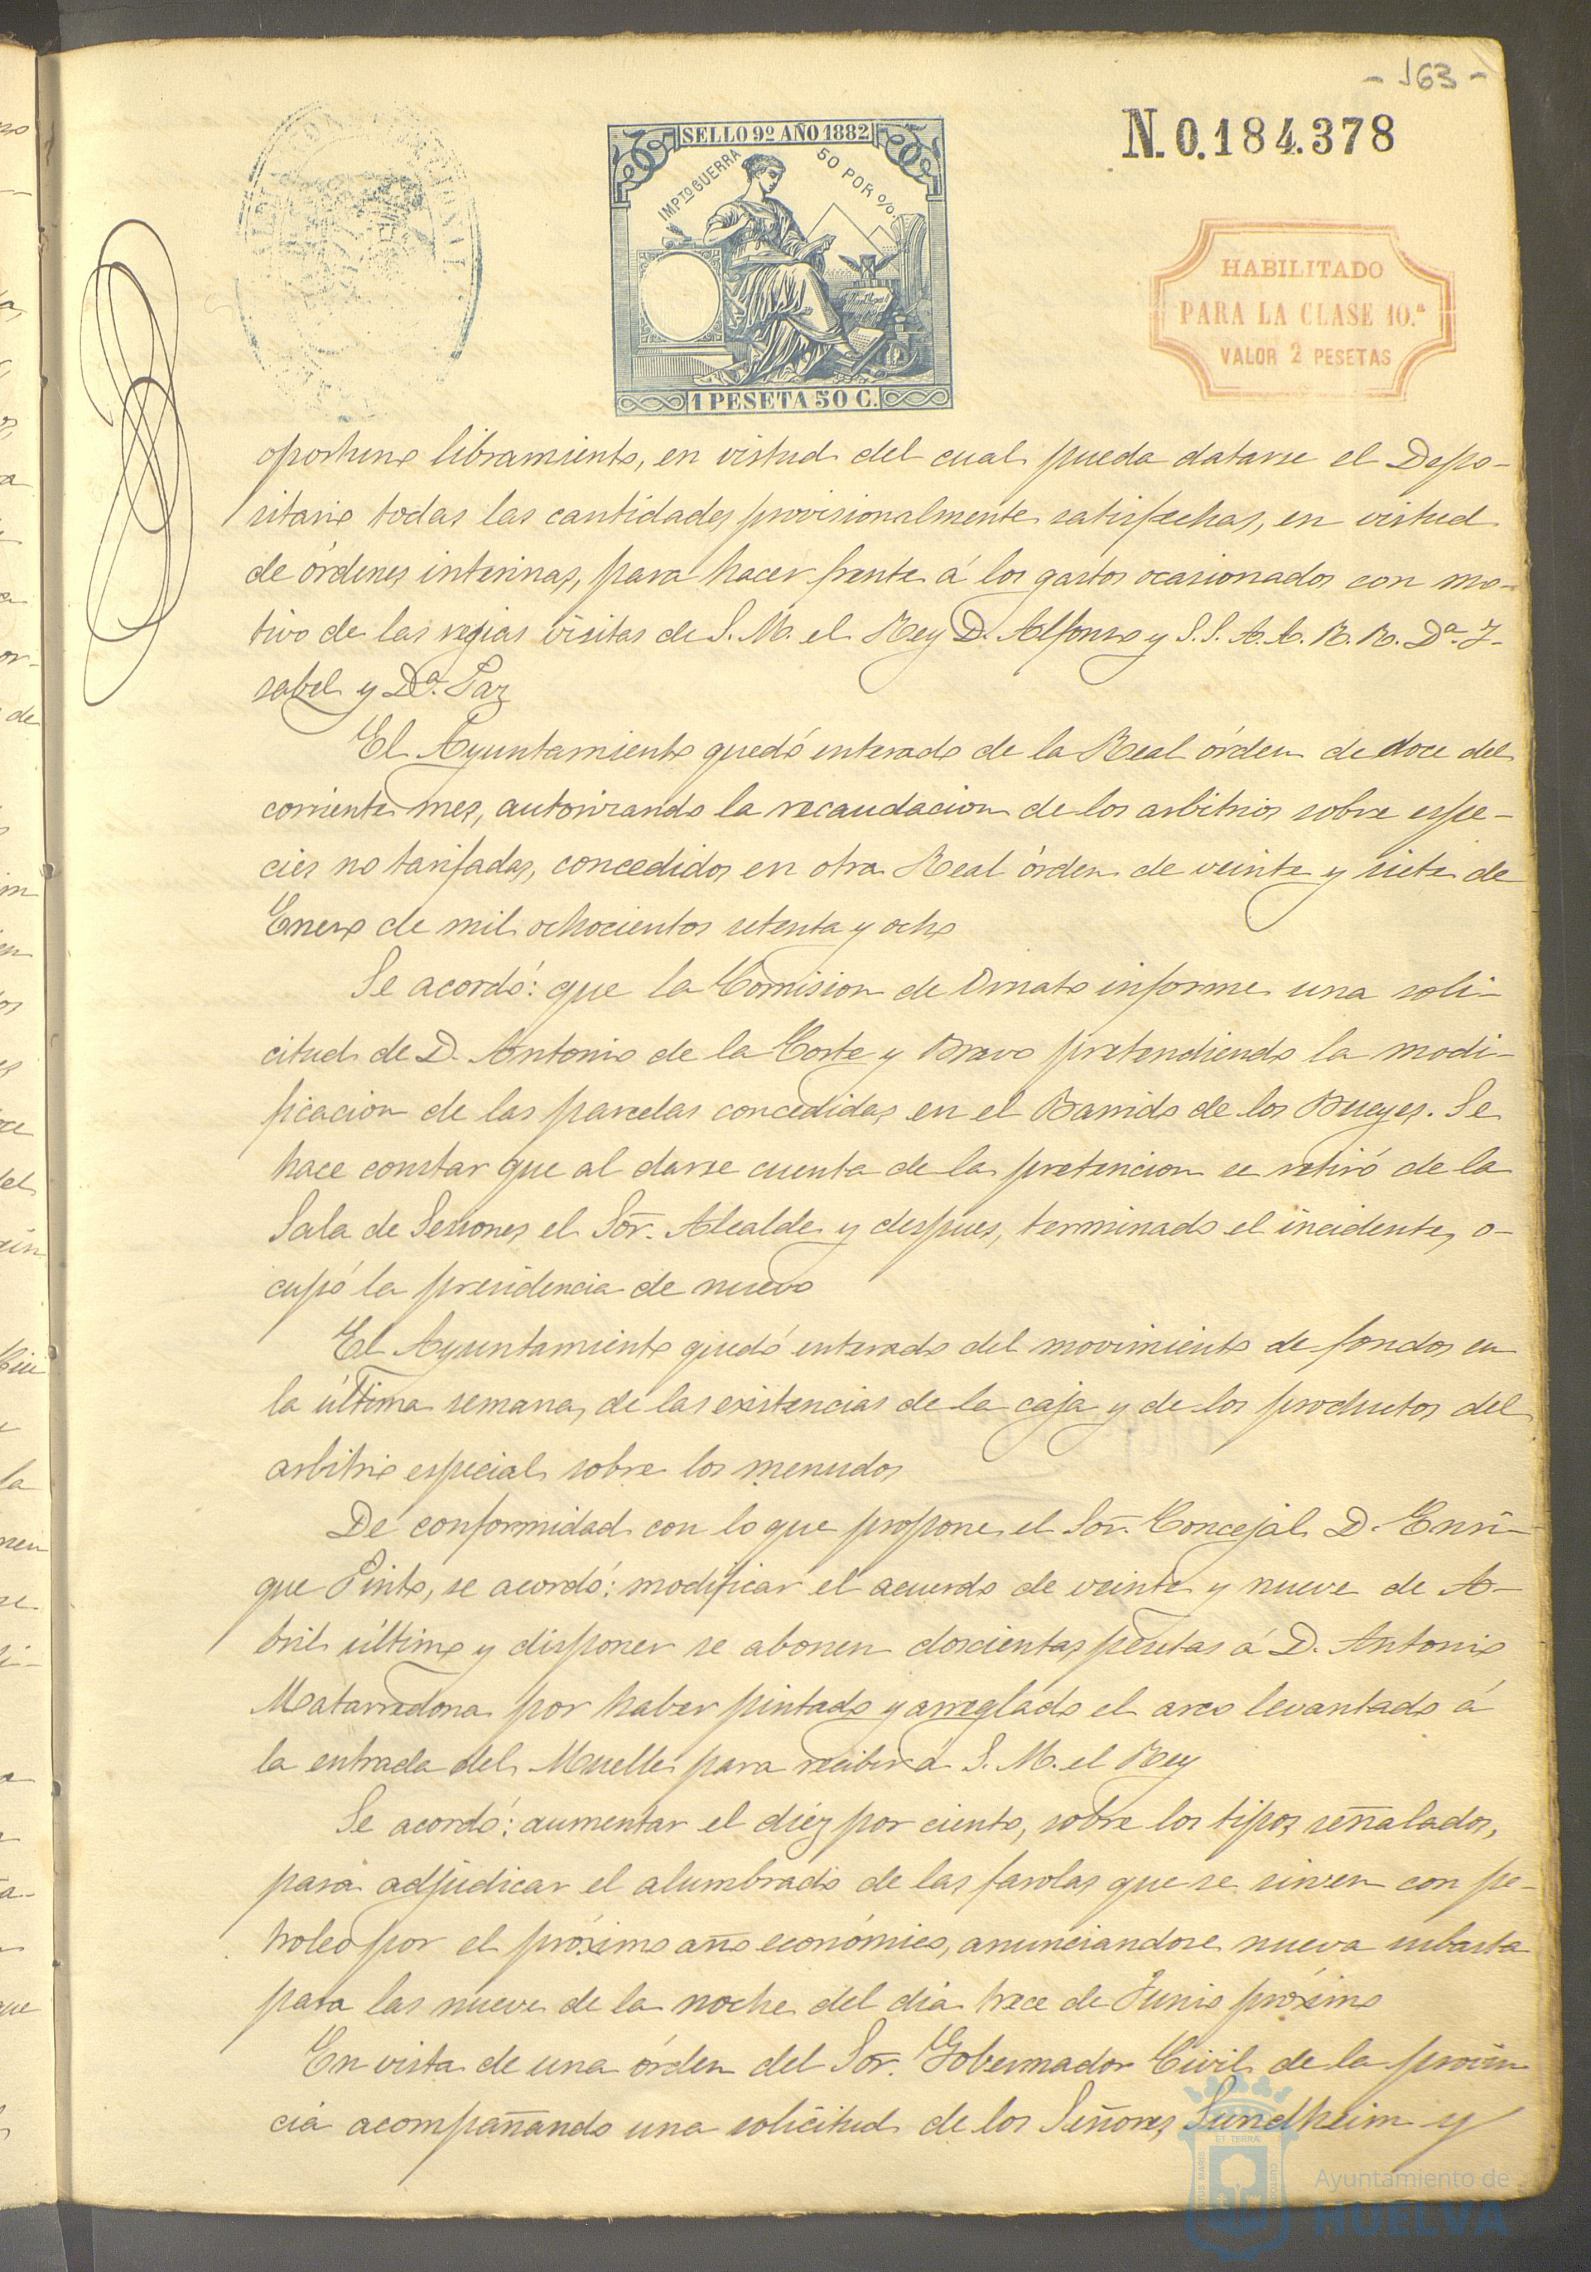 - 163 -
N. 0.184.378
SELLO 9º AÑO 1882
IMPTO GUERRA 50 POR 0/0.
1 PESETA 50 C.
HABILITADO
PARA LA CLASE 10.ª
VALOR 2 PESETAS
oportuno libramiento, en virtud del cual pueda datarse el Depo-
sitario todas las cantidades provisionalmente satisfechas, en virtud
de órdenes interinas, para hacer frente á los gastos ocasionados con mo-
tivo de las regias visitas de S. M. el Rey D. Alfonso y S. S. A. A. R. R. Dª. I-
sabel y Dª. Paz
El Ayuntamiento quedó enterado de la Real órden de doce del
corriente mes, autorizando la recaudacion de los arbitrios sobre espe-
cies no tarifadas, concedidos en otra Real órden de veinte y siete de
Enero de mil ochocientos setenta y ocho
Se acordó: que la Comision de Ornato informe una soli-
citud de D. Antonio de la Corte y Bravo pretendiendo la modi-
ficacion de las parcelas concedidas en el Barrido de los Bueyes. Se
hace constar que al darse cuenta de la pretencion se retiró de la
Sala de Sesiones el Sor. Alcalde y despues, terminado el incidente, o-
cupó la presidencia de nuevo
El Ayuntamiento quedó enterado del movimiento de fondos en
la última semana, de las existencias de la caja y de los productos del
arbitrio especial sobre los menudos
De conformidad con lo que propone el Sor. Concejal D. Enri-
que Pinto, se acordó: modificar el acuerdo de veinte y nueve de A-
bril último y disponer se abonen doscientas pesetas á D. Antonio
Matarredona por haber pintado y arreglado el arco levantado á
la entrada del Muelle para recibir á S. M. el Rey
Se acordó: aumentar el diéz por ciento, sobre los tipos señalados,
para adjudicar el alumbrado de las farolas que se sirven con pe-
troleo por el próximo año económico, anunciandose nueva subasta
para las nueve de la noche del dia trece de Junio próximo
En vista de una órden del Sor. Gobernador Civil de la provin
cia acompañando una solicitud de los Señores Sundheim y
Ayuntamiento de
HUELVA